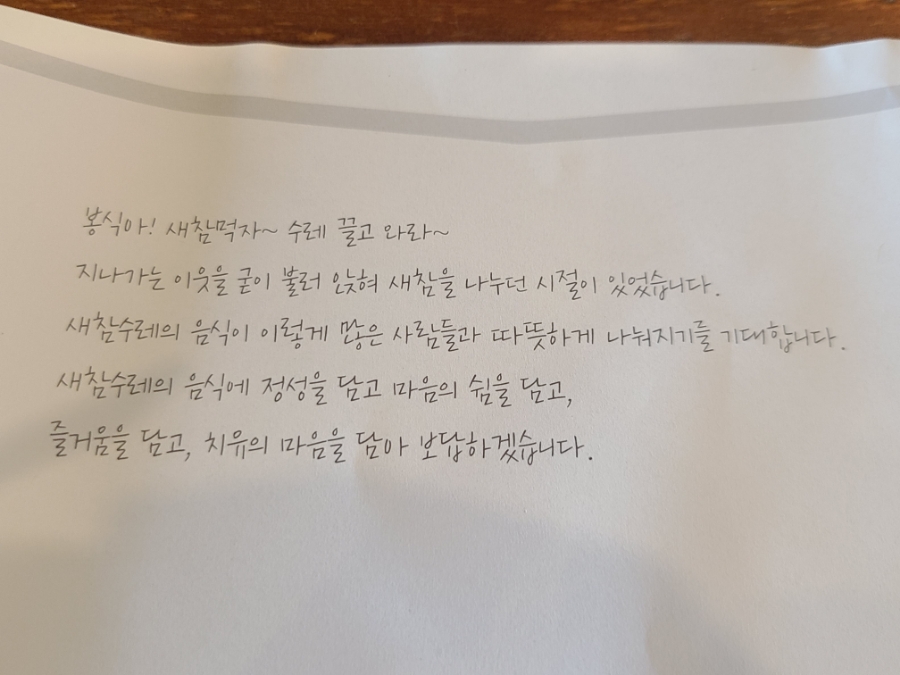 봉식아! 새참먹자~ 수레 끌고 와라~
지나가는 이웃을 굳이 불러 앉혀 새참을 나누던 시절이 있었습니다.
새참수레의 음식이 이렇게 많은 사람들과 따뜻하게 나눠지기를 기대합니다.
새참수레의 음식에 정성을 담고 마음의 쉼을 담고,
즐거움을 담고, 치유의 마음을 담아 보답하겠습니다.